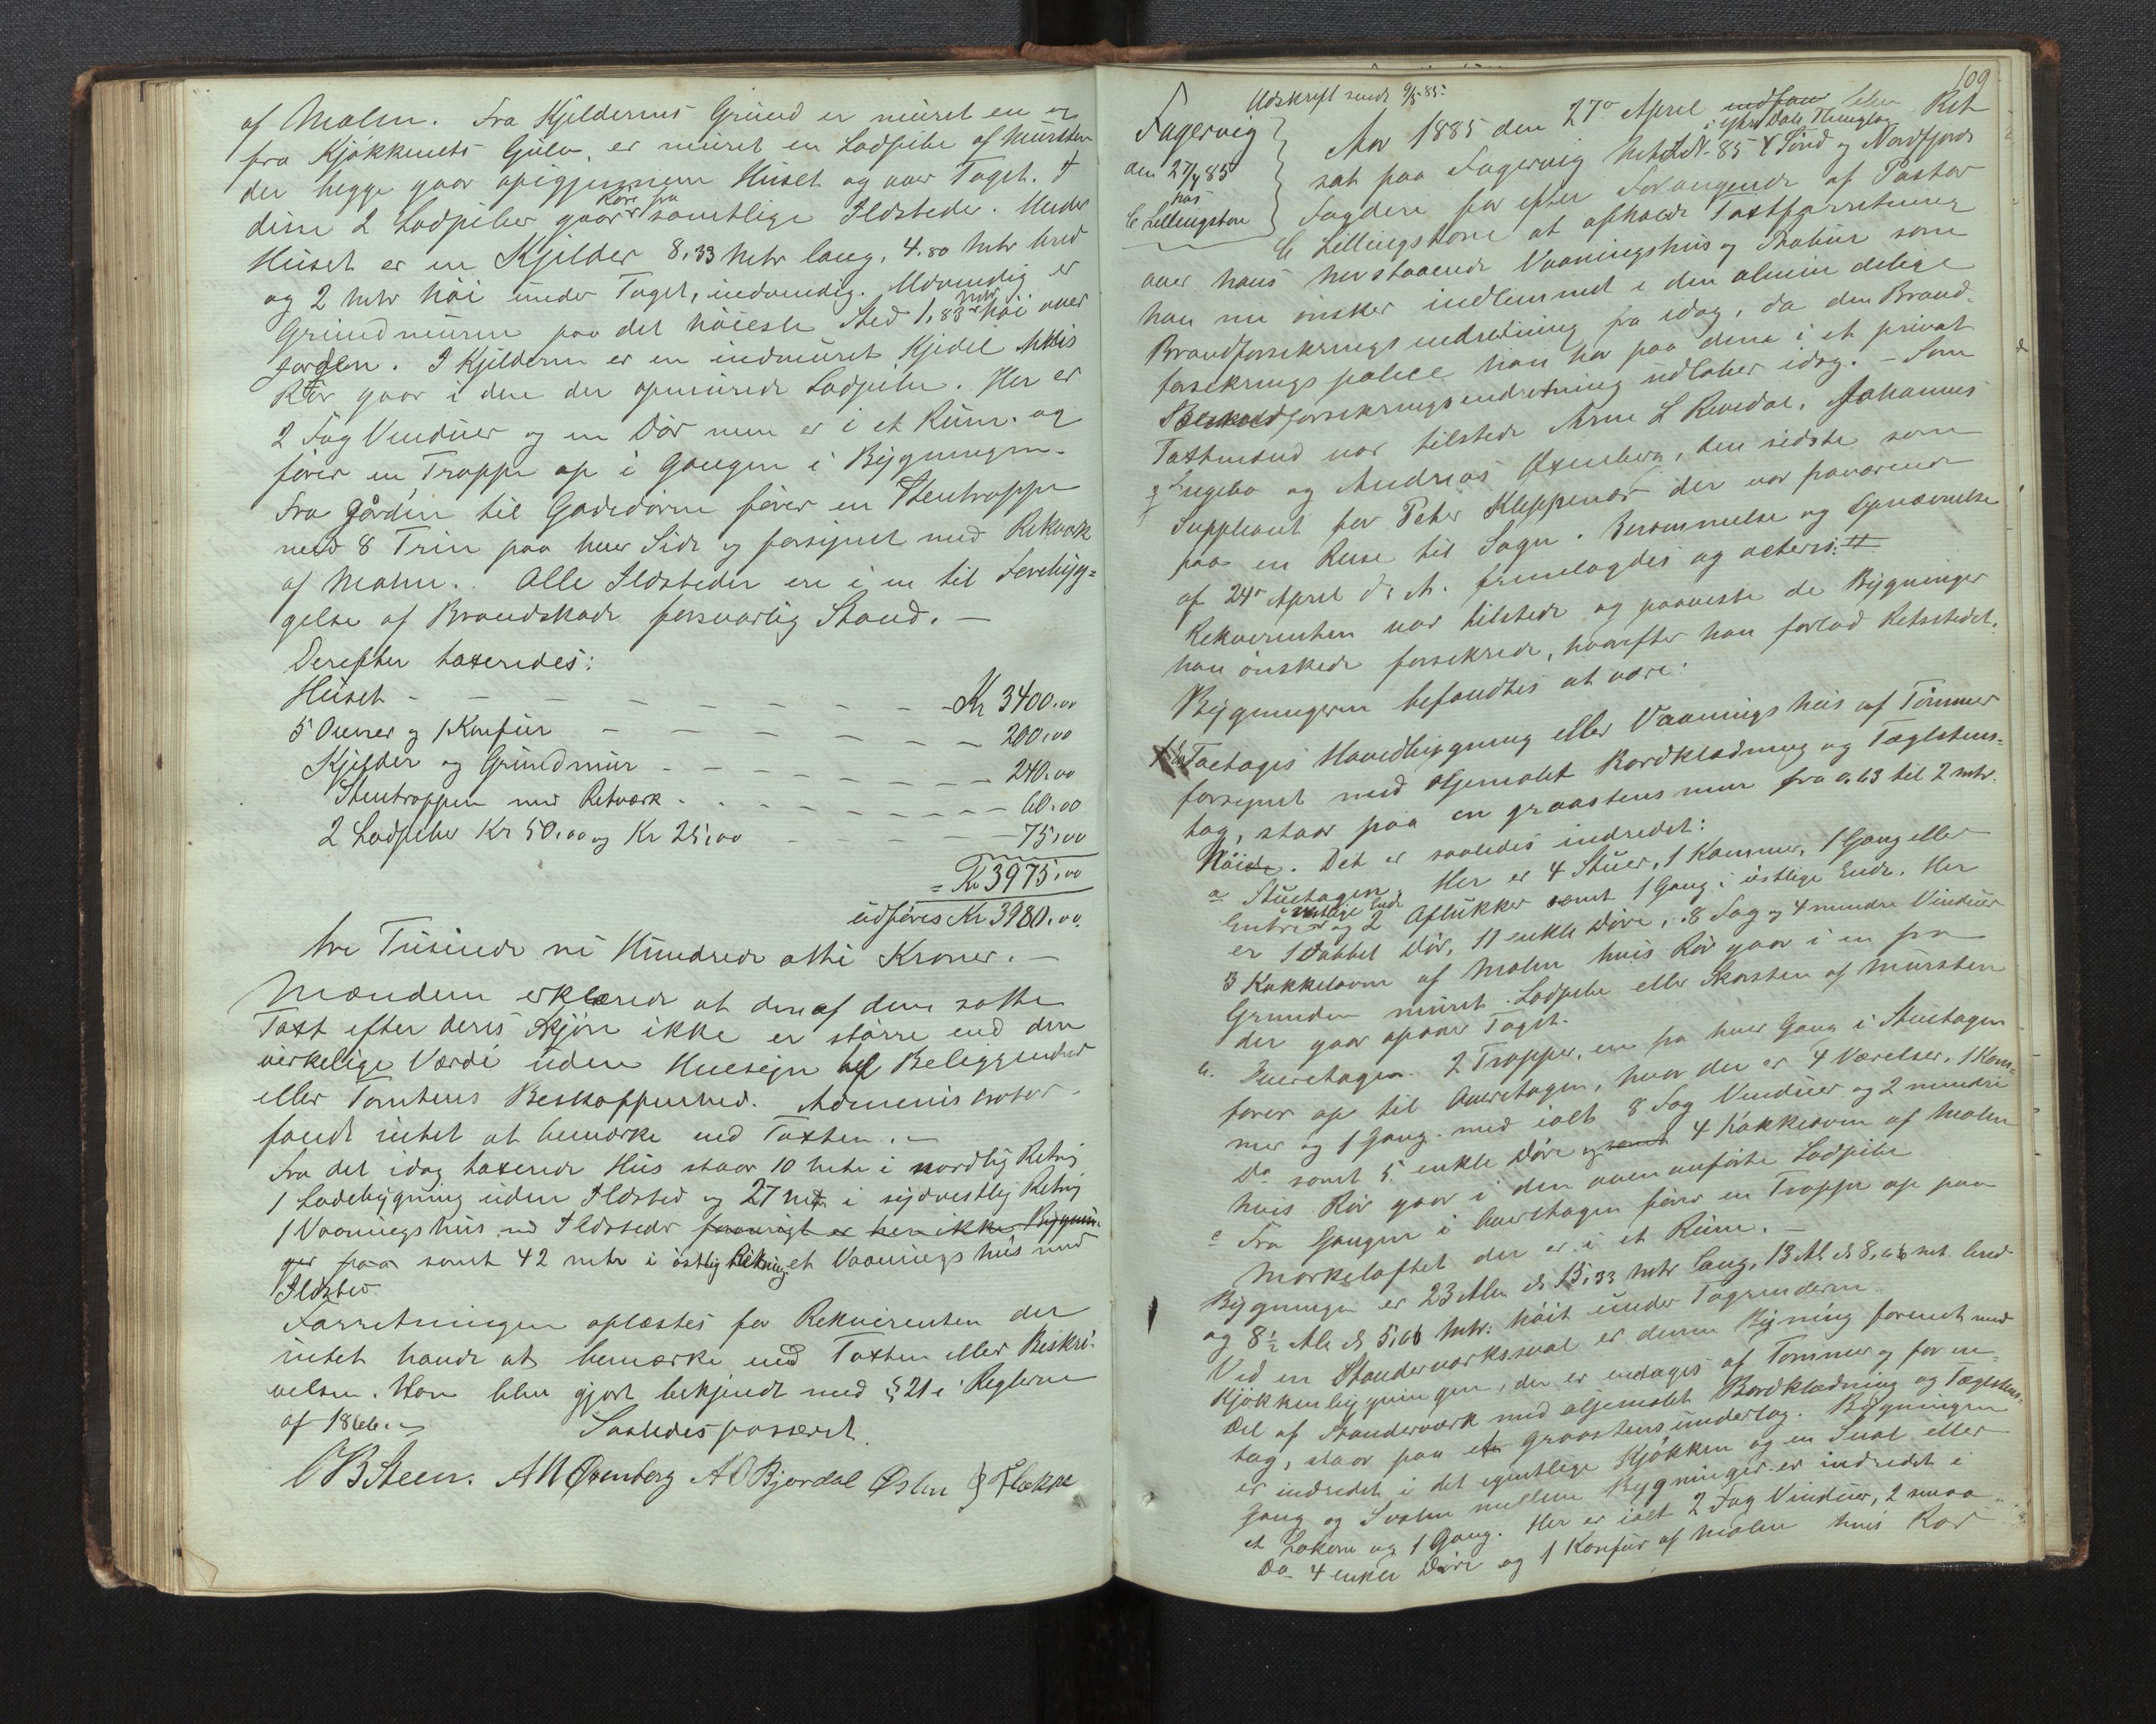 af Malm. Fra Kjelderens Grund er muret en og
fra Kjøkkenets Gulv er muret en Ladpibe af Mursten
der begge gaar opigjennem Huset og over Taget. I
disse 2 Ladpiber gaar Rør fra samtlige Ildsteder. Under
Huset er en Kjelder 8,33 Metr lang, 4.80 Metr bred
og 2 Metr høi under Taget, indvendig. Udvendig er
Grundmuren paa det høieste Sted 1,83 Metr høi over
Jorden. I Kjelderen er en indmuret Kjedel hvis
Rør gaar i den der opmurede Ladpibe. Her er
2 Fag Vinduer og en Dør men er i et Rum. og
fører en Trappe op i Gangen i Bygningen.
Fra Gården til Gadedøren fører en Stentrappe
med 8 Trin paa hver Side og forsynet med Rekværk
af Malm. Alle Ildsteder ere i en til Forebyg=
gelse af Brandskade forsvarlig Stand. —
Derefter taxeredes:
Huset - - - - - - - - Kr 3400.00
5 Ovner og 1 Komfur - - - - - - 200.00
Kjelder og Grundmur - - - - - - 240.00
Stentrappen med Rekværk - - - - - - 60.00
2 Ladpiber Kr 50.00 og Kr 25,00 - - - - 75,00
= Kr 3975,00
udføres Kr 3980.00.
tre Tusinde ni Hundrede otti Kroner. —
Mændene erklærede at den af dem satte
Taxt efter deres Skjøn ikke er større end den
virkelige Værdi uden Hensyn til Beliggenhed
eller Tomtens Beskaffenhed. Administrator
fandt intet at bemærke ved Taxten. —
Fra det idag taxerede Hus staar 10 Metr i nordlig Retnig
1 Ladebygning uden Ildsted og 27 Metr i sydvestlig Retnig
1 Vaaningshus med Ildsteder forøvrigt er her ikke Bygnin-
ger paa samt 42 metr i østlig Retning et Vaaningshus med
Ildsted.
Forretningen oplæstes for Rekvirenten der
intet havde at bemærke ved Taxten eller Beskri-
velsen. Han blev gjort bekjendt med § 21 i Reglerne
af 1866.
Saaledes passeret.
O B Steen. A N Øxenberg A O Bjordal Østen J Flekke
109
Udskrift sendt 9/5 85.
Fagervig
den 27/4 85
hos
C Lillingston
Aar 1885 den 27de April indfan blev Ret
i Ytre Dals Thinglag
sat paa Fagervig Mat. L.N. 85 i Sønd og Nordfjords
Fogderi for efter Forlangende af Pastor
C Lillingstone at afholde Taxtforretning
over hans herstaaende Vaaningshus og Stabur som
han nu ønsker indlemmet i den almindelige
Brandforsikringsindretning fra idag, da den Brand-
forsikringspolice han har paa disse i et privat
Brandforsikringsindretning udløber idag. — Som
Taxtmænd var tilstede Arne L Revedal, Johannes
Engebø og Andreas Øxenberg, den sidste som
Suppleant for Peter Kleppenæs der var fraværende
paa en Reise til Sogn. Berammelse og Opnævnelse
af 24de April d. A. fremlagdes og acteres.
Rekvirenten var tilstede og paaviste de Bygninger
han ønskede forsikrede, hvorefter han forlod Retsstedet.
Bygningerne befandtes at være:
1 En Toetages Hovedbygning eller Vaaningshus af Tømmer
forsynet med oljemalet Bordklædning og Taglstens-
tag, staar paa en graastens mur fra 0,63 til 2 mtr.
Høide. Det er saaledes indredet:
a Stuetagen. Her er 4 Stuer, 1 Kammer, 1 Gang eller
Entre i vestlige Ende og 2 Aflukker samt 1 Gang i østlige Ende. Her
er 1 Dobbel Dør, 11 enkle Døre, 8 Fag og 4 mindre Vinduer
3 Kakkelovne af Malm hvis Rør gaar i en fra
Grunden muret Ladpibe eller Skorsten af Mursten
der gaar opover Taget.
b. Øveretagen. 2 Trapper, en fra hver Gang i Stuetagen
fører op til Øveretagen, hvor der er 4 Værelser, 1 Kam-
mer og 1 Gang med ialt 8 Fag Vinduer og 2 mindre
Do samt 5 enkle Døre og samt 4 Kakkelovne af Malm
hvis Rør gaar i den ovenanførte Ladpibe
c Fra Gangen i Øveretagen fører en Trappe op paa
Mørkeloftet der er i et Rum. —
Bygningen er 23 Alen ɔ: 15,33 Metr lang, 13 Al. ɔ: 8,66 met. bred
og 8½ Alen ɔ: 5,66 Metr. høit under Tagrenderne.
Ved en Standerværkssval er denne Bygning forenet med
Kjøkkenbygningen, der er enetages af Tømmer og for en
Del af Standerværk med oljemalet Bordklædning og Taglstens-
tag, staar paa et graastensunderlag. Bygningen
er indredet i det egentlige Kjøkken og en Sval eller
Gang og Svalen mellem Bygninger er indredet i
et Lokum og 1 Gang. Her er ialt 2 Fag Vinduer, 2 smaa
Do 4 enkle Døre og 1 Komfur af Malm hvis Rør